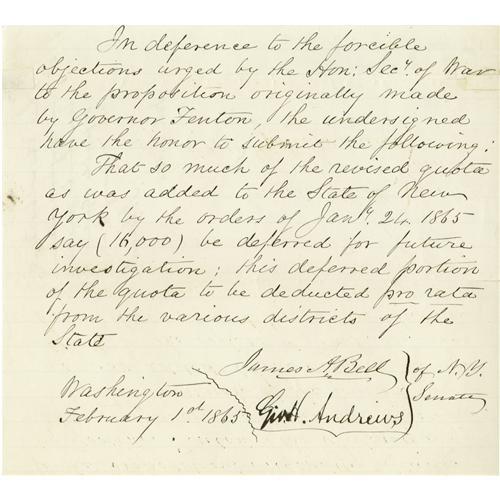 In deference to the forcible
objections urged by the Hon: Secy. of War
to the proposition originally made
by Governor Fenton, the undersigned
have the honor to submit the following:
That so much of the revised quota
as was added to the State of New
York by the orders of Jany. 24 1865
say (16,000) be deferred for future
investigation; this deferred portion
of the quota to be deducted pro rata
from the various districts of the
State
James A. Bell
Geo H. Andrews
of N.Y.
Senate
Washington
February 1st 1865